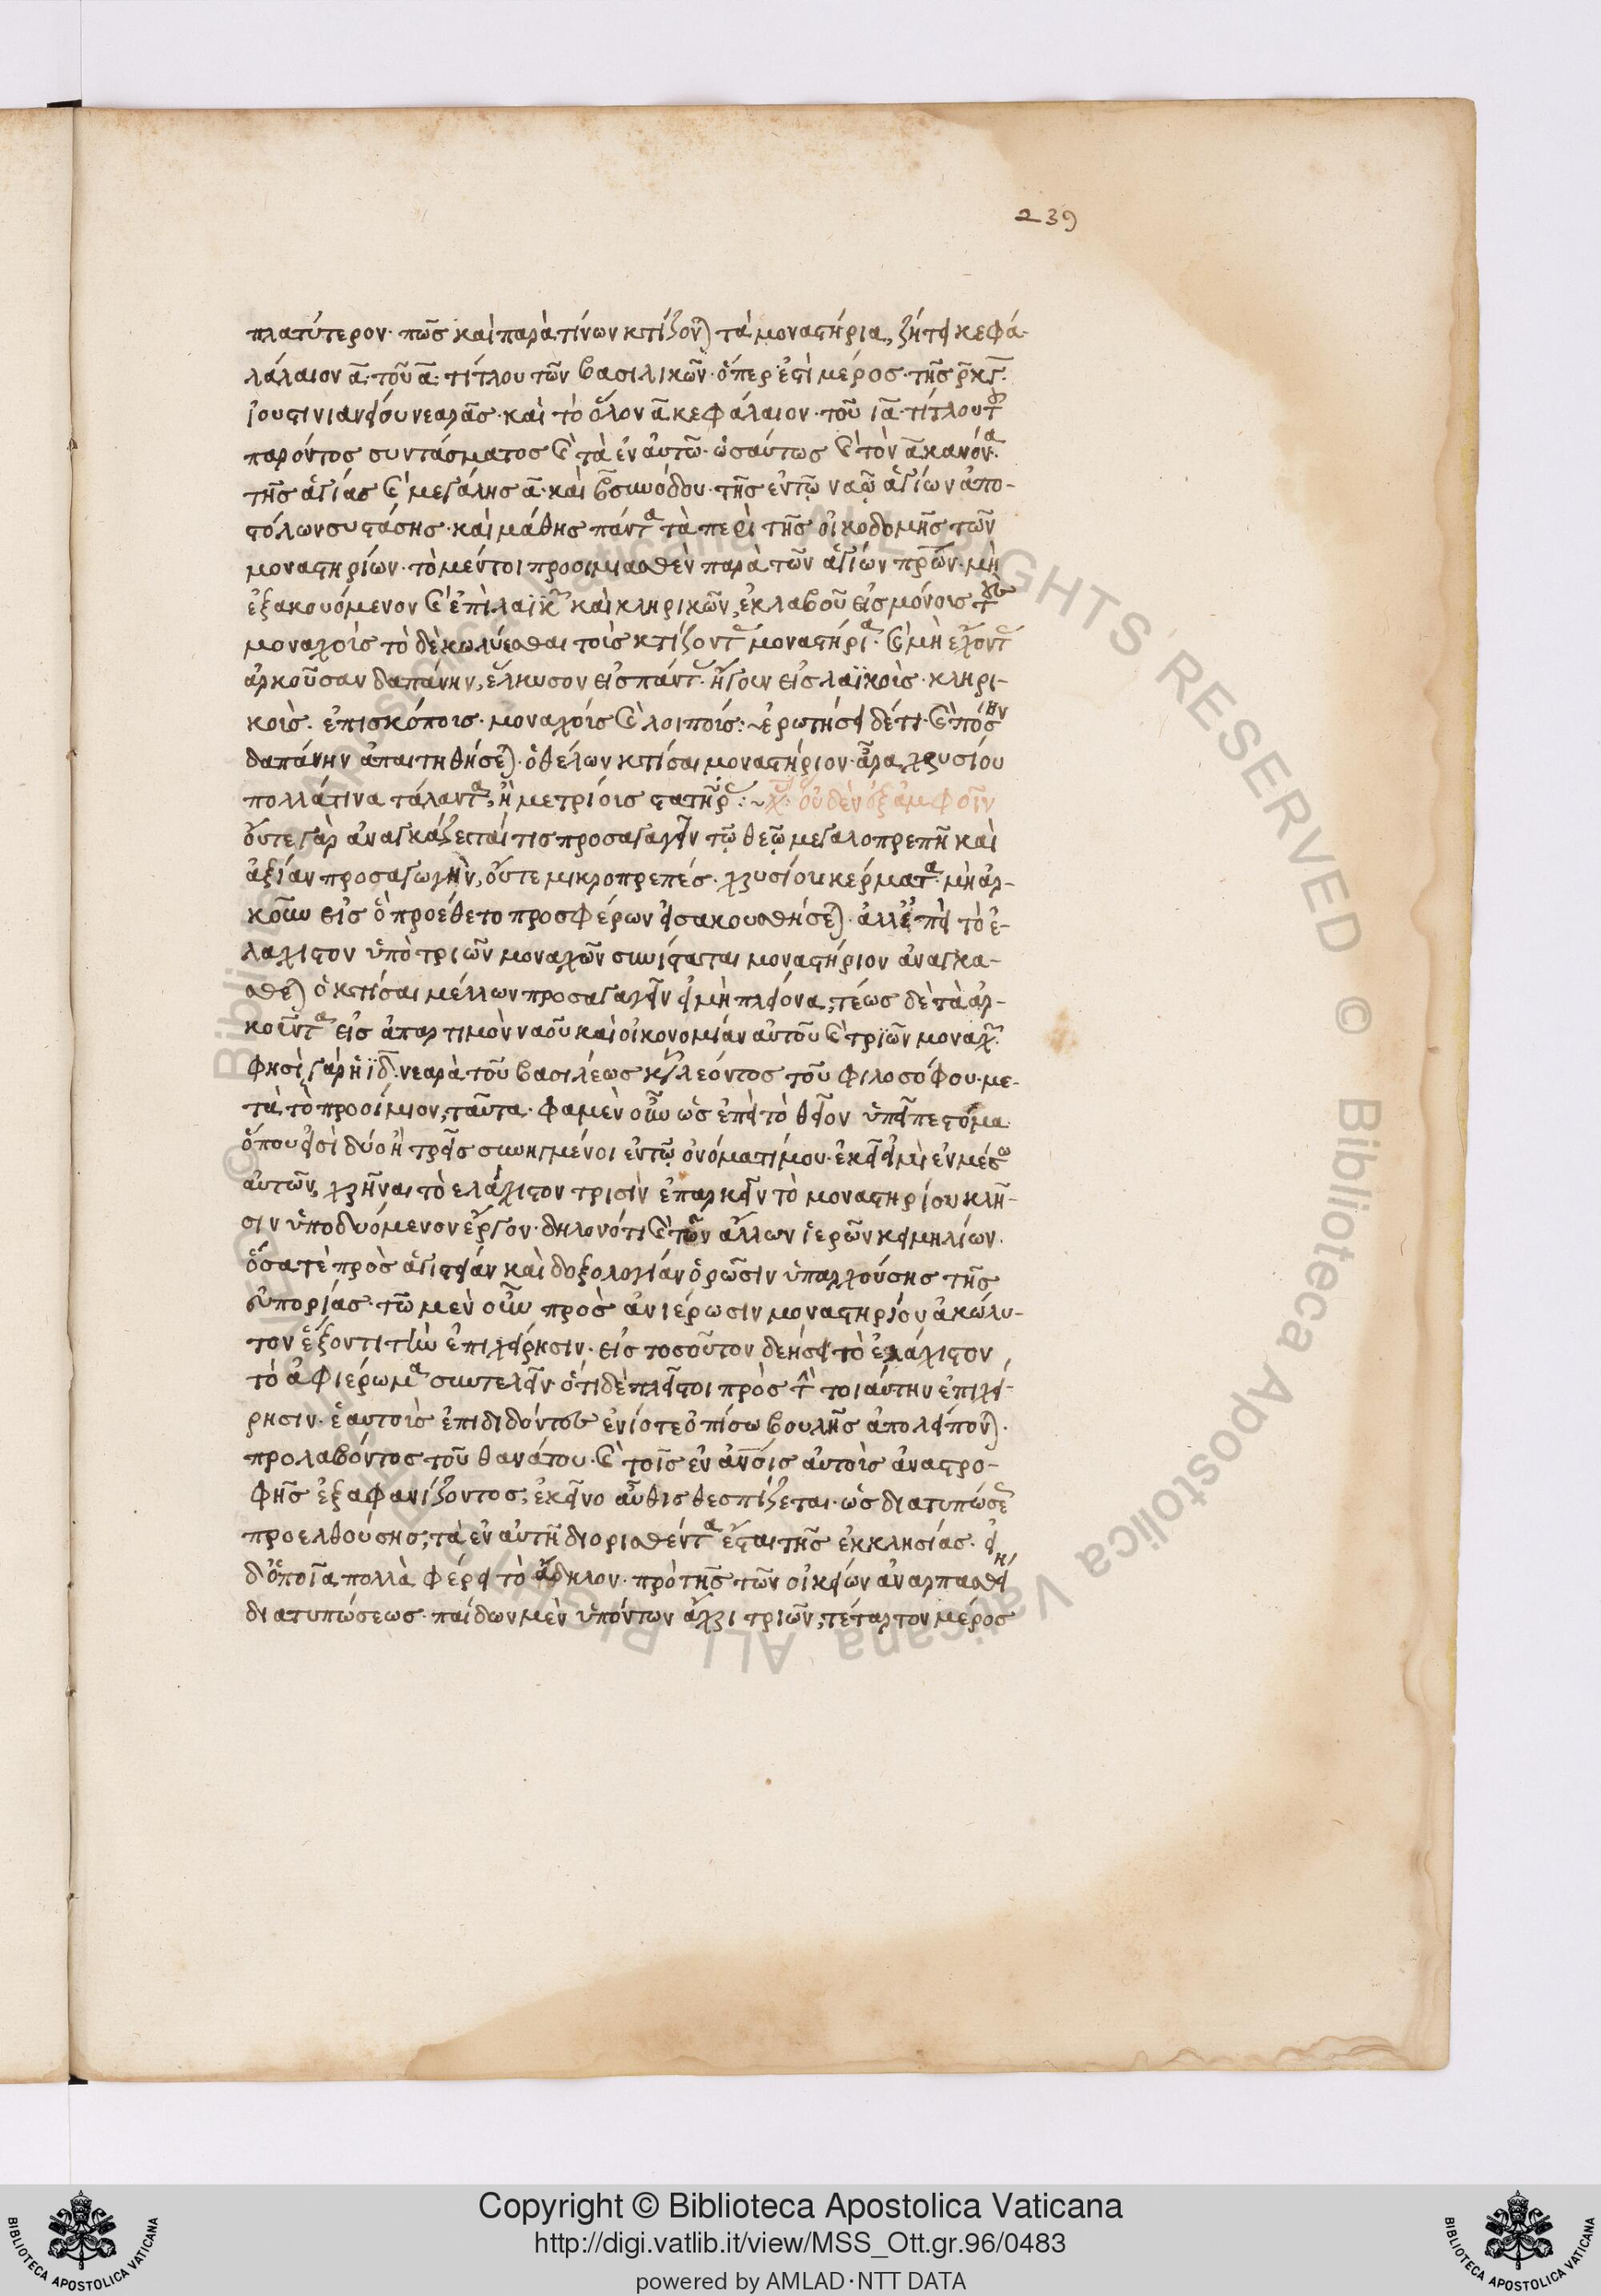 239
πλατύτερον· πῶς καὶ παρὰ τίνων κτίζον) τὰ μοναστήρια, ζήτει κεφά-
λάλαιον α̅· τοῦ α̅· τίτλου τῶν βασιλικῶν· ὅπερ ἐστὶ μέρος· τῆς ρ̅κ̅γ̅·
ἰουστινιανείου νεαρᾶς· καὶ τὸ ὅλον α̅ κεφάλαιον· τοῦ ια̅· τίτλου τ
παρόντος συντάγματος καὶ τὰ ἐν αὐτῶ· ὡσαύτως καὶ τὸν α̅ κανόνα·
τῆς ἁγίας καὶ μεγάλης α̅· καὶ β̅ συνόδου· τῆς ἐν τῷ ναῷ ἁγίων ἀπο-
στόλων συστάσης· καὶ μάθης πάντα τὰ περὶ τῆς οἰκοδομῆς τῶν
μοναστηρίων· τὸ μέντοι προοιμιασθὲν παρὰ τῶν ἁγίων πρ̅ων· μὴ
ἐξακουόμενον καὶ ἐπὶ λαϊκ καὶ κληρικῶν, ἐκλαβοῦ εἰς μόνους τ
μοναχοὺς τὸ δὲ κωλύεσθαι τοὺς κτίζοντ μοναστήρια· καὶ μὴ ἔχοντ
ἀρκοῦσαν δαπάνην, ἕλκυσον εἰς πάντ· ἤγουν εἰς λαϊκοὺς· κληρι-
κοὺς· ἐπισκόπους· μοναχοὺς καὶ λοιπούς:~ ἐρωτήσει δέ τι· καὶ πόσην
δαπάνην ἀπαιτηθήσε)· ὁ θέλων κτίσαι μοναστήριον· ἆρα χρυσίου
πολλά τινα τάλαντα, ἢ μετρίους στατῆρ:~ χ· οὐδὲν ἐξ ἀμφοῖν
οὔτε γὰρ ἀναγκάζεταί τις προσαγαγεῖν τῷ θεῷ μεγαλοπρεπῆ καὶ
ἀξίαν προσαγωγὴν, οὔτε μικροπρεπές· χρυσίου κέρματα· μὴ ἀρ-
κοῦν εἰς ὃ προέθετο προσφέρων εἰσακουσθήσε)· ἀλλ' ἐπεὶ τὸ ἐ-
λάχιστον ὑπὸ τριῶν μοναχῶν συνίσταται μοναστήριον ἀναγκα-
σθε) ὁ κτίσαι μέλλων προσαγαγεῖν εἰ μὴ πλείονα, τέως δὲ τὰ ἀρ-
κοῦντα εἰς ἀπαρτισμὸν ναοῦ καὶ οἰκονομίαν αὐτοῦ καὶ τριῶν μοναχ·
φησὶ γὰρ ἡ ιδ̅· νεαρὰ τοῦ βασιλέως κυ λέοντος τοῦ φιλοσόφου· με-
τὰ τὸ προοίμιον, ταῦτα· φαμὲν οὖν ὡς ἐπεὶ τὸ θεῖον ὑπεῖπε στόμα
ὅπου εἰσὶ δύο ἢ τρεῖς συνηγμένοι ἐν τῷ ὀνόματί μου· ἐκεῖ εἰμὶ ἐν μέσω
αὐτῶν, χρῆναι τὸ ἐλάχιστον τρισὶν ἐπαρκεῖν τὸ μοναστηρίου κλῆ-
σιν ὑποδυόμενον ἔργον· δηλονότι καὶ τῶν ἄλλων ἱερῶν κειμηλίων·
ὅσα τὲ πρὸς ἁγιστείαν καὶ δοξολογίαν ὁρῶσιν ὑπαρχούσης τῆς
εὐπορίας· τῶ μὲν οὖν πρὸς ἀνιέρωσιν μοναστηρίου ἀκώλυ-
τον ἕξοντι τὴν ἐπιχείρησιν· εἰς τοσοῦτον δεήσει τὸ ἐλάχιστον
τὸ ἀφιέρωμα συντελεῖν· ὅτι δὲ πλεῖστοι πρὸς τὴν τοιαύτην ἐπιχεί-
ρησιν· ἑαυτοὺς ἐπιδιδόντες ἐνίοτε ὀπίσω βουλῆς ἀπολείπον)·
προλαβόντος τοῦ θανάτου· καὶ τοῖς ἐν ἀν̅οις αὐτοὺς ἀναστρο-
φῆς ἐξαφανίζοντος, ἐκεῖνο αὖθις θεσπίζεται· ὡς διατυπώσε
προελθούσης, τὰ ἐν αὐτῆ διορισθέντα ἔσται τῆς ἐκκλησίας· εἰ
δ' ὁποῖα πολλὰ φέρει τὸ ἄδηλον· πρὸ τῆς τῶν οἰκείων ἀναρπασθείη
διατυπώσεως· παίδων μὲν ὑπόντων ἄχρι τριῶν, τέταρτον μέρος
Copyright © Biblioteca Apostolica Vaticana
http://digi.vatlib.it/view/MSS_Ott.gr.96/0483
powered by AMLAD·NTT DATA
BIBLIOTECA APOSTOLICA VATICANA
BIBLIOTECA APOSTOLICA VATICANA
© Biblioteca Apostolica Vaticana ALL RIGHTS RESERVED
© Biblioteca Apostolica Vaticana ALL RIGHTS RESERVED